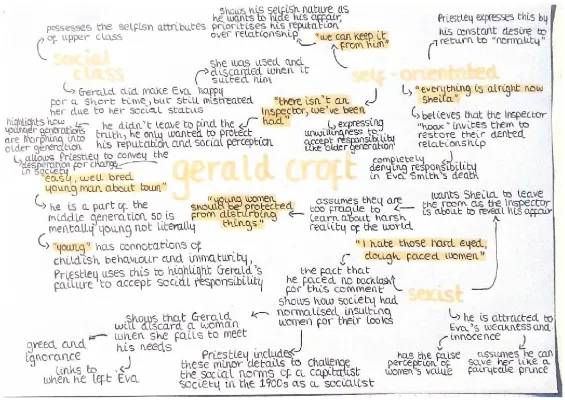 shows his selfish nature as
he wants to hide his affair,
prioritises his reputation
over relationship
"we can keep it
from him"
Priestley expresses this by
his constant desire to
return to "normality"
possesses the selfish attributes
of upper class
social
class
self-orientated
"everything is alright now
Sheila"
believes that the Inspector
"hoax" invites them to
restore their dented
relationship
Gerald did make Eva happy
for a short time, but still mistreated
her due to her social status
she was used and
discarded when it
suited him
"there isn't an
Inspector, we've been
had"
expressing
unwillingness to
accept responsibility
like older generation
completely
denying responsibility
in Eva Smith's death
he didn't leave to find the
truth, he only wanted to protect
his reputation and social perception
highlights how
younger generations
are morphing into
older generation
allows Priestley to convey the
desperation for change
in society
gerald croft
"easy, well bred
young man about town"
he is a part of the
middle generation so is
mentally young not literally
"young" has connotations of
childish behaviour and immaturity,
Priestley uses this to highlight Gerald's
failure to accept social responsibility
"young women
should be protected
from disturbing
things"
assumes they are
too fragile to
learn about harsh
reality of the world
wants Sheila to leave
the room as the Inspector
is about to reveal his affair
"I hate those hard eyed,
dough faced women"
sexist
the fact that
he faced no backlash
for this comment
shows how society had
normalised insulting
women for their looks
shows that Gerald
will discard a woman
when she fails to meet
his needs
greed and
ignorance
links to
when he left Eva
Priestley includes
these minor details to challenge
the social norms of a capitalist
society in the 1900s as a socialist
he is attracted to
Eva's weakness and
innocence
has the false
perception of
women's value
assumes he can
save her like a
fairytale prince